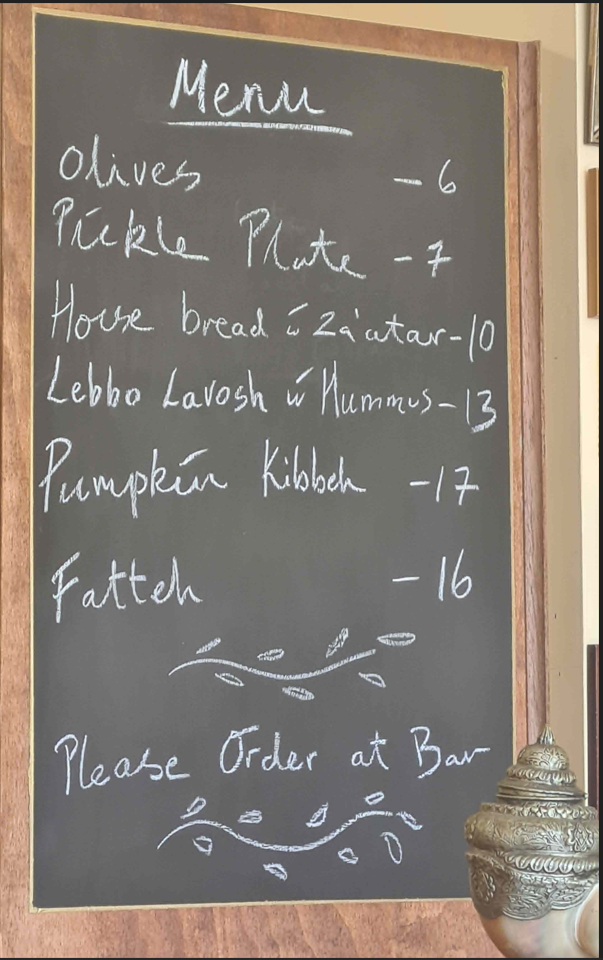 Menu
Olives - 6
Pickle Plate - 7
House bread w Za'atar - 10
Lebbo Lavosh w Hummus - 13
Pumpkin Kibbeh - 17
Fatteh - 16
Please Order at Bar